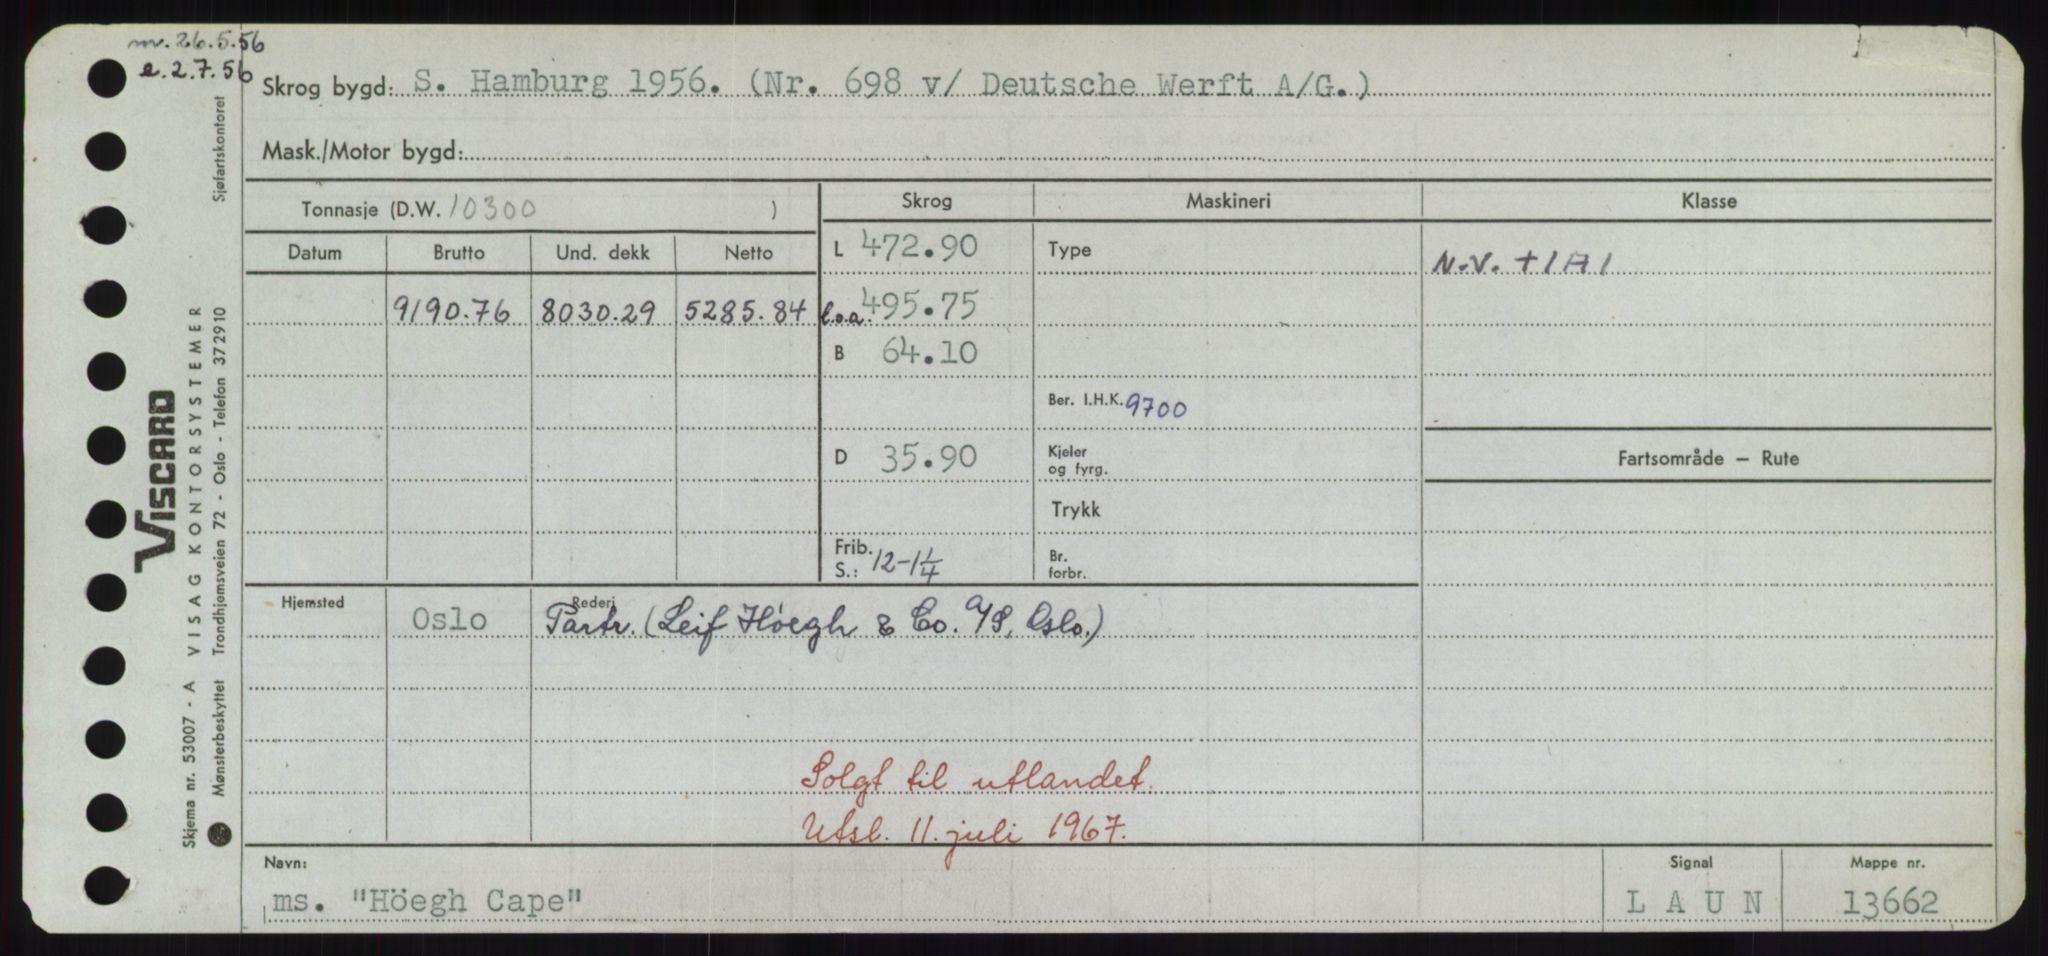 nv. 26.5.56
e. 2.7.56
Skrog bygd: S. Hamburg 1956. (Nr. 698 v/ Deutsche Werft A/G.)
Mask./Motor bygd:
Tonnasje (D.W. 10300 )
Skrog
Maskineri
Klasse
Datum
Brutto
Und. dekk
Netto
L 472.90
Type
N.V. + 1 A 1
9190.76
8030.29
5285.84
l.o.a. 495.75
B 64.10
Ber. I.H.K. 9700
D 35.90
Kjeler
og fyrg.
Fartsområde – Rute
Trykk
Frib.
S.: 12-1 1/4
Br.
forbr.
Hjemsted
Oslo
Rederi
Partr. (Leif Höegh & Co. A/S, Oslo.)
Solgt til utlandet.
Utsl. 11. juli 1967.
Navn:
ms. "Höegh Cape"
Signal
L A U N
Mappe nr.
13662
VISCARD
Sjøfartskontoret
VISAG KONTORSYSTEMER
Trondhjemsveien 72 - Oslo - Telefon 372910
Skjema nr. 53007 - A
Mønsterbeskyttet